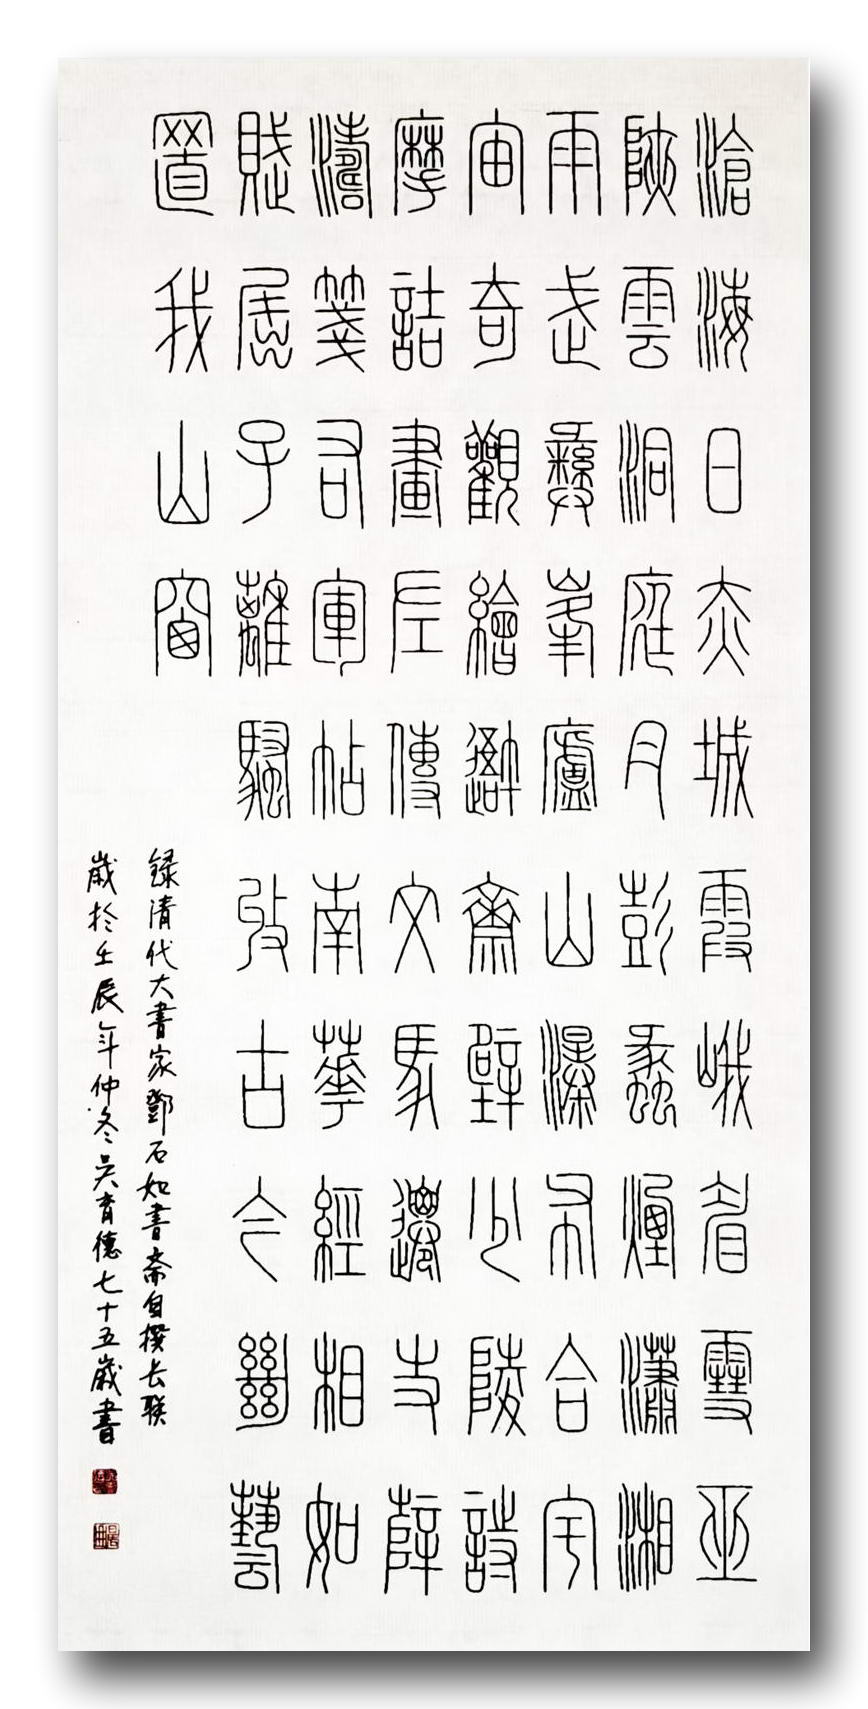 滄海日赤城霞峨眉雪巫
陜雲洞庭月彭蠡煙瀟湘
雨武彝峯廬山瀑布合宇
宙奇觀繪吾齋壁少陵詩
摩詰畫左傳文馬遷史薛
濤箋右軍帖南華經相如
賦屈子離騷收古今絕藝
置我山窗
録清代大書家鄧石如書斋自撰长联
歲於壬辰年仲冬吴育德七十五歲書